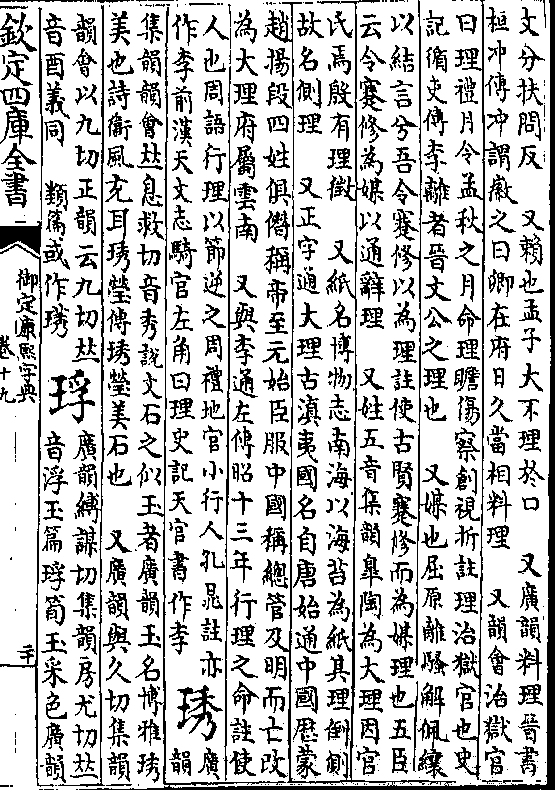 文分扶問反　又賴也孟子大不理於口　又廣韻料理晉書
桓冲傳冲謂徽之曰卿在府日久當相料理　又韻會治獄官
曰理禮月令孟秋之月命理瞻傷察創視折註理治獄官也史
記循吏傳李離者晉文公之理也　又媒也屈原離騷解佩纕
以結言兮吾令蹇修以為理註使古賢蹇修而為媒理也五臣
云令蹇修為媒以通辭理　又姓五音集韻臯陶為大理因官
氏焉殷有理徵　又紙名博物志南海以海苔為紙其理倒側
故名側理　又正字通大理古滇夷國名自唐始通中國歷蒙
趙揚段四姓俱僭稱帝至元始臣服中國稱總管及明而亡改
為大理府屬雲南　又與李通左傳昭十三年行理之命註使
人也周語行理以節逆之周禮地官小行人孔晁註亦
作李前漢天文志騎官左角曰理史記天官書作李
琇
廣韻
集韻韻會𠀤息救切音秀說文石之似玉者廣韻玉名博雅琇
美也詩衞風充耳琇瑩傳琇瑩美石也　又廣韻與久切集韻
韻會以九切正韻云九切𠀤
音酉義同　類篇或作璓
琈
廣韻縛謀切集韻房尤切𠀤
音浮玉篇琈筍玉采色廣韻
欽定四庫全書
御定康熙字典
卷十九
二十